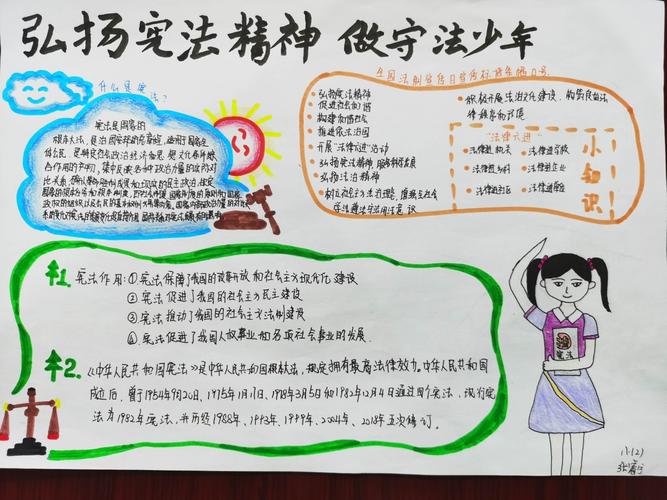 弘扬宪法精神 做守法少年
什么是宪法?
宪法是国家的
根本大法，是治国安邦的总章程，适用于国家全
体公民，是特定社会政治经济和思想文化条件综
合作用的产物，集中反映各种政治力量的实际对
全国法制宣传日宣传标语
弘扬宪法精神
促进社会和谐
构建和谐社会
推进依法治国
开展“法律六进”活动
弘扬宪法精神，服务科学发展
弘扬法治精神
树立社会主义法治理念，增强全社会
学法遵法守法用法意识
积极开展法治文化建设，构筑良好法
律秩序和环境
“法律六进”
法律进机关 法律进学校
法律进乡村 法律进企业
法律进社区 法律进单位
小知识
1. 宪法作用：①宪法保障了我国的改革开放和社会主义现代化建设
②宪法促进了我国的社会主义民主建设
③宪法推动了我国的社会主义法制建设
④宪法促进了我国人权事业和各项社会事业的发展.
2. 《中华人民共和国宪法》是中华人民共和国根本大法，规定拥有最高法律效力.中华人民共和国
成立后，曾于1954年9月20日、1975年1月17日、1978年3月5日和1982年12月4日通过四个宪法，现行宪
法为1982年宪法，并历经1988年、1993年、1999年、2004年、2018年五次修订。
宪法